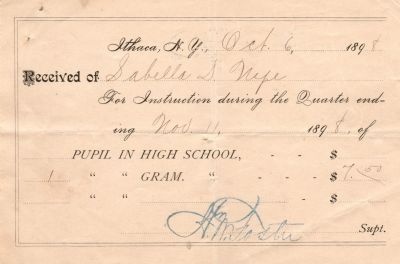 Ithaca, N. Y., Oct. 6, 1898
Received of Isabella D. Nype
For Instruction during the Quarter end-
ing Nov. 11, 1898. of
PUPIL IN HIGH SCHOOL, - - $
1 " " GRAM. " - - $ 7.50
" " - - $
Foster Supt.